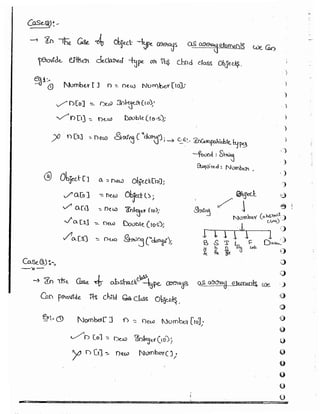 Case(2):-
→ In the Case of Object-type arrays as array elements we can
provide either declared type or its child class objects.
eg:-
① Number[] n = new Number[10];
✓n[0] = new Integer(10);
✓n[1] = new Double(10.5);
✗ n[2] = new String("durga"); → C.E:- Incompatible types
found: String
required: Number.
② Object[] a = new Object[10];
✓a[0] = new Object();
✓a[1] = new Integer(10);
✓a[2] = new Double(10.5);
✓a[3] = new String("durga");
Object
String
Number (abstract
B S I L F D
Case(3):-
→ In the Case of abstract class type arrays as array elements we
Can provide its child class objects.
Eg:- ① Number[] n = new Number[10];
✓n[0] = new Integer(10);
✗ n[1] = new Number();